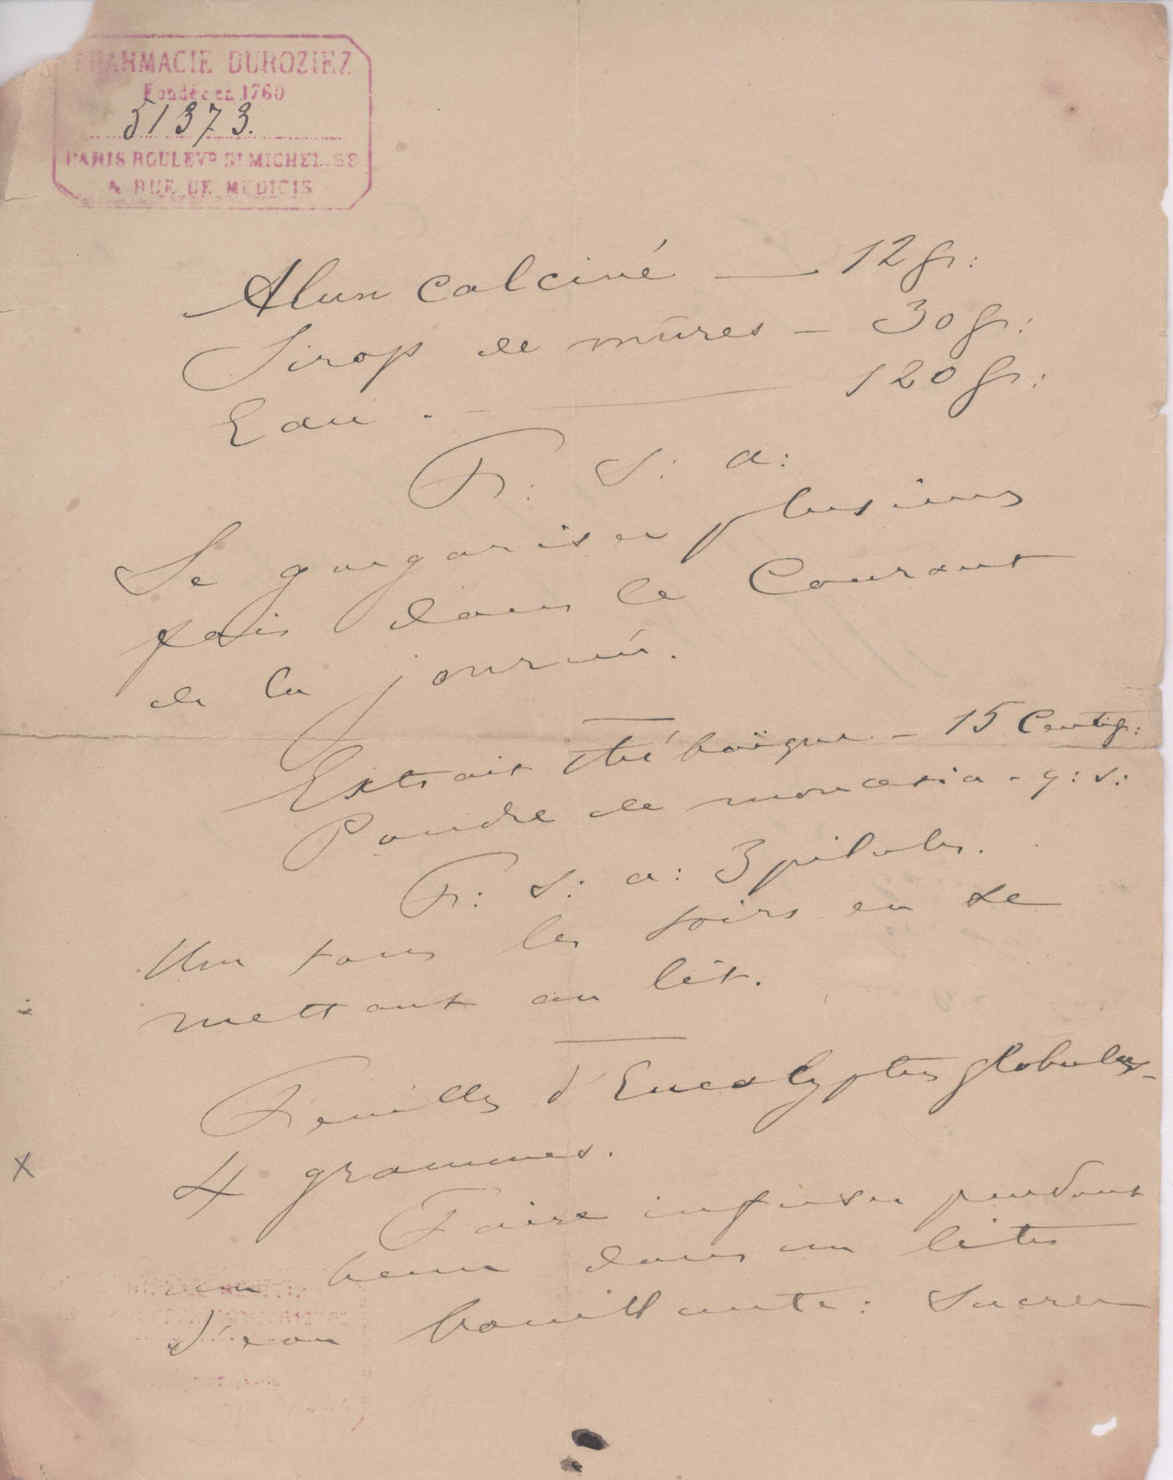 PHARMACIE DUROZIEZ
Fondée en 1760
51373.
PARIS BOULEVD ST MICHEL
& RUE DE MEDICIS
Alun calciné — 12 gr:
Sirop de mûres — 30 gr:
Eau . — 120 gr:
F: S: a:
Se gargariser plusieurs
fois dans le Courant
de la journée.
Extrait thébaïque — 15 Centigr:
Poudre de monesia - q: s:
F: s: a: 3 pilules.
Une tous les soirs en se
mettant au lit.
Feuilles d'Eucalyptus globulus -
4 grammes.
Faire infuser pendant
une heure dans un litre
d'eau bouillante: Sucrer
X